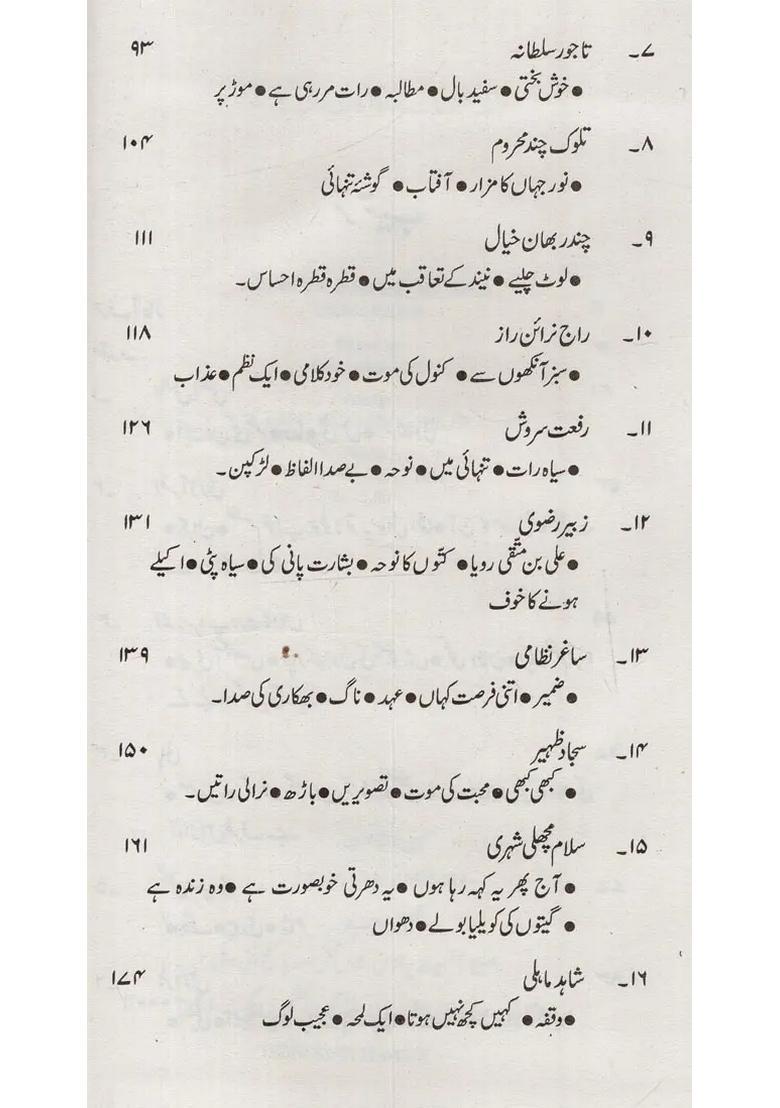 ۷۔ تاجور سلطانہ ۹۳
● خوش بختی ● سفید بال ● مطالبہ ● رات مر رہی ہے ● موڑ پر
۸۔ تلوک چند محروم ۱۰۴
● نور جہاں کا مزار ● آفتاب ● گوشئہ تنہائی
۹۔ چندر بھان خیال ۱۱۱
● لوٹ چلیے ● نیند کے تعاقب میں ● قطرہ قطرہ احساس۔
۱۰۔ راج نرائن راز ۱۱۸
● سبز آنکھوں سے ● کنول کی موت ● خود کلامی ● ایک نظم ● عذاب
۱۱۔ رفعت سروش ۱۲۶
● سیاہ رات ● تنہائی میں ● نوحہ ● بے صدا الفاظ ● لڑکپن۔
۱۲۔ زبیر رضوی ۱۳۱
● علی بن متقی رویا ● کتّوں کا نوحہ ● بشارت پانی کی ● سیاہ پٹی ● اکیلے
ہونے کا خوف
۱۳۔ ساغر نظامی ۱۳۹
● ضمیر ● اتنی فرصت کہاں ● عہد ● ناگ ● بھکاری کی صدا۔
۱۴۔ سجاد ظہیر ۱۵۰
● کبھی کبھی ● محبت کی موت ● تصویریں ● باڑھ ● نرالی راتیں۔
۱۵۔ سلام مچھلی شہری ۱۶۱
● آج پھر یہ کہہ رہا ہوں ● یہ دھرتی خوبصورت ہے ● وہ زندہ ہے
● گیتوں کی کویلیا بولے ● دھواں
۱۶۔ شاہد ماہلی ۱۷۴
● وقفہ ● کہیں کچھ نہیں ہوتا ● ایک لمحہ ● عجیب لوگ